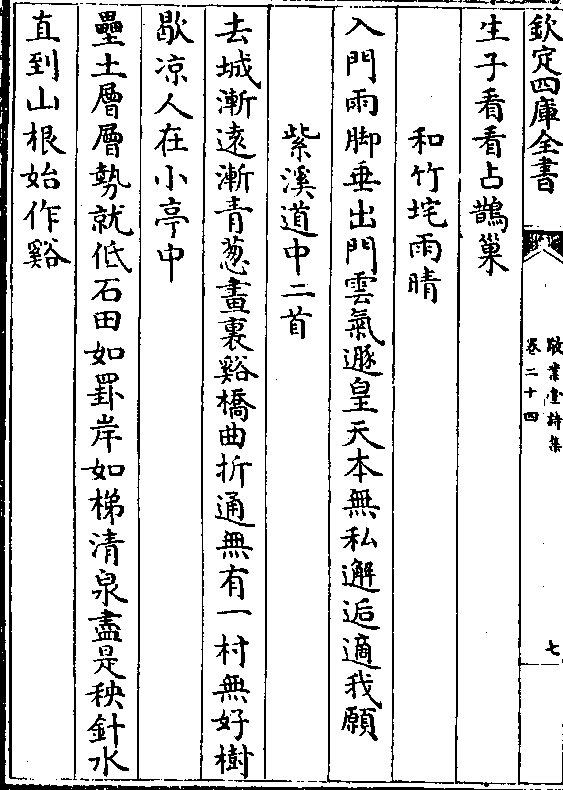 欽定四庫全書
敬業堂詩集
卷二十四
七
生子看看占鵲巢
和竹垞雨晴
入門雨脚垂出門雲氣遯皇天本無私邂逅適我願
紫溪道中二首
去城漸遠漸青葱畫裏谿橋曲折通無有一村無好樹
歇凉人在小亭中
壘土層層勢就低石田如罫岸如梯清泉盡是秧針水
直到山根始作谿